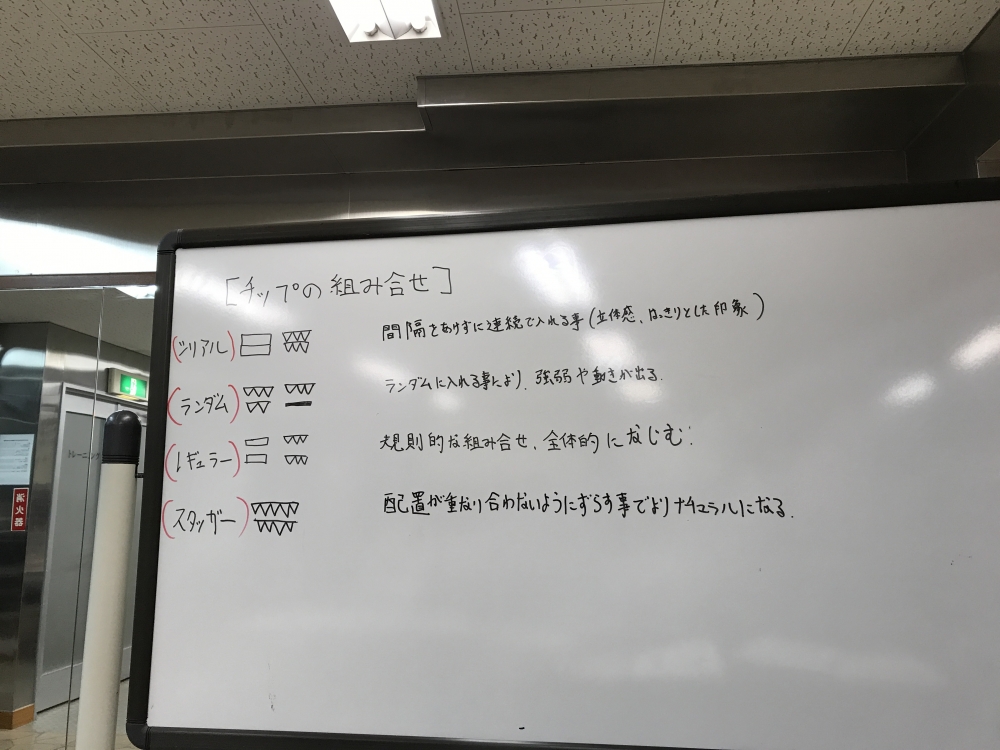 [チップの組み合せ]
(シリアル) 間隔をあけずに連続で入れる事(立体感、はっきりとした印象)
(ランダム) ランダムに入れる事により、強弱や動きが出る.
(レギュラー) 規則的な組み合せ、全体的になじむ.
(スタッガー) 配置が重なり合わないようにずらす事でよりナチュラルになる.
トレーニング
消火器